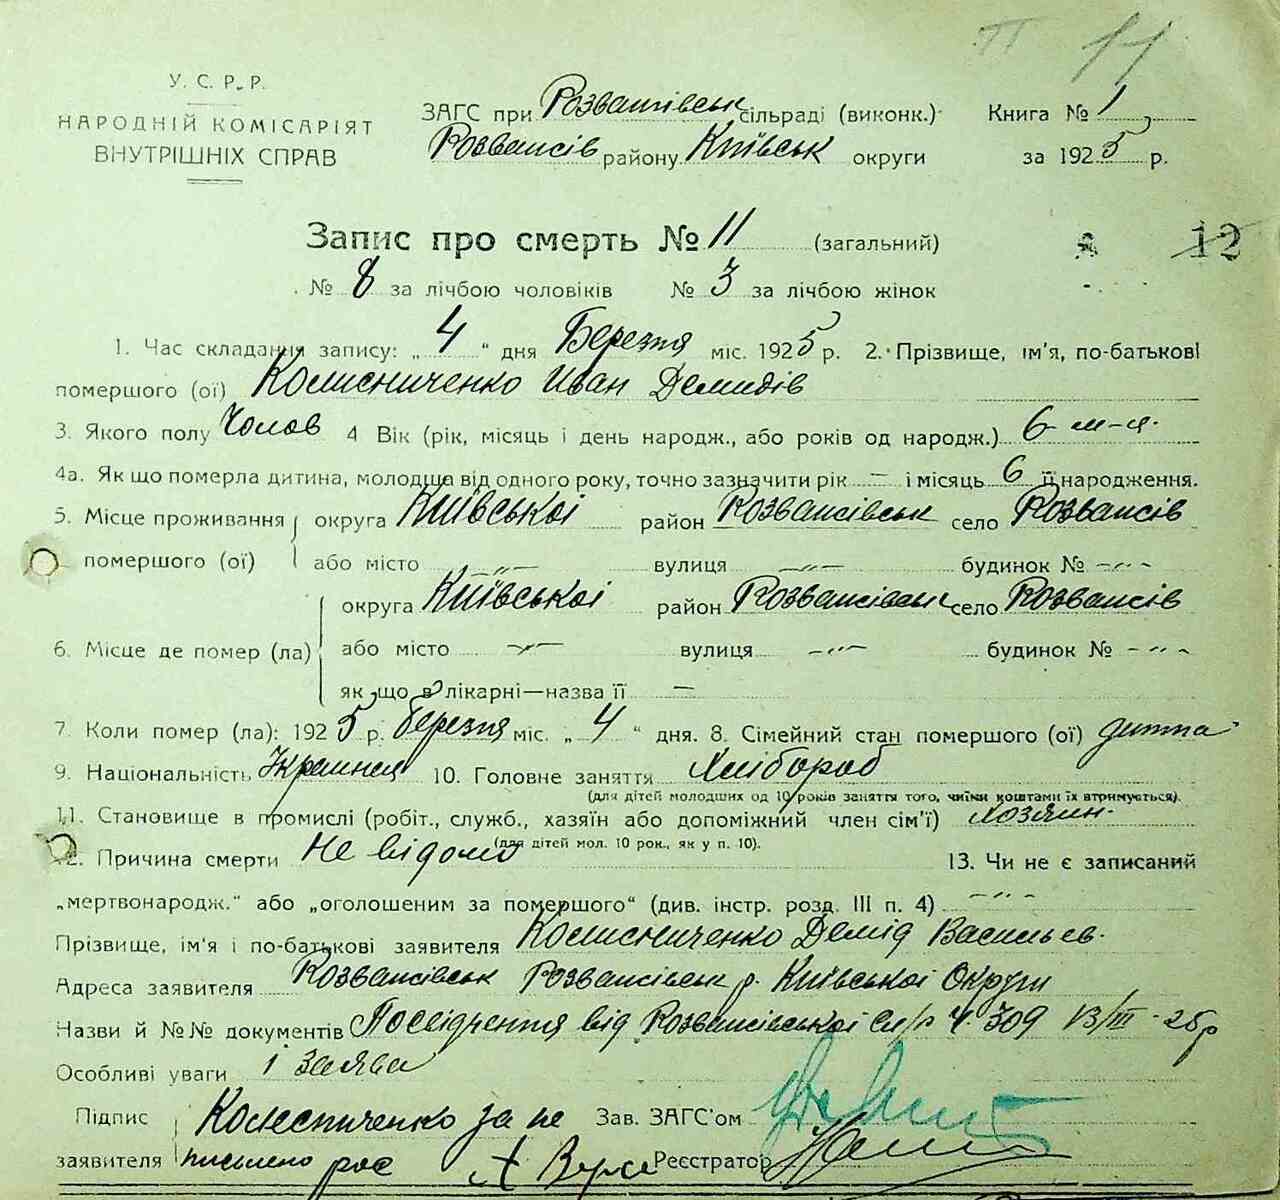 11
У. С. Р. Р.
НАРОДНІЙ КОМІСАРІЯТ
ВНУТРІШНІХ СПРАВ
ЗАГС при Розважівськ сільраді (виконк.) Книга № 1
Розважів району Київськ округи за 1925 р.
Запис про смерть № 11 (загальний) 12
№ 8 за лічбою чоловіків № 3 за лічбою жінок
1. Час складання запису: „ 4 “ дня Березня міс. 1925 р. 2. Прізвище, ім'я, по-батькові
помершого (ої) Колисниченко Иван Демидів
3. Якого полу Чолов 4 Вік (рік, місяць і день народж., або років од народж.) 6 м-я.
4а. Як що померла дитина, молодша від одного року, точно зазначити рік — і місяць 6 її народження.
5. Місце проживання округа Київської район Розважівськ село Розважів
помершого (ої) або місто -"- вулиця -"- будинок № -"-
округа Київської район Розважівськ село Розважів
6. Місце де помер (ла) або місто -"- вулиця -"- будинок № -"-
як що в лікарні—назва її —
7. Коли помер (ла): 1925 р. березня міс. „ 4 “ дня. 8. Сімейний стан помершого (ої) дитта
9. Національність Українец 10. Головне заняття Хлібороб
(для дітей молодших од 10 років заняття того, чиїми коштами їх втримується).
11. Становище в промислі (робіт., служб., хазяїн або допоміжний член сім'ї) хозяин.
(для дітей мол. 10 рок., як у п. 10).
12. Причина смерти Не відомо 13. Чи не є записаний
„мертвонародж.“ або „оголошеним за помершого“ (див. інстр. розд. III п. 4) -"-
Прізвище, ім'я і по-батькові заявителя Колисниченко Демід Васильев.
Адреса заявителя Розважівськ Розважівськ р. Київської Округи
Назви й №№ документів Посвідчення від Розважівської сл/р Ч. 309 13/III - 25 р
Особливі уваги і заява
Підпис Колесниченко за не Зав. ЗАГС'ом
заявителя письмено рос Реєстратор